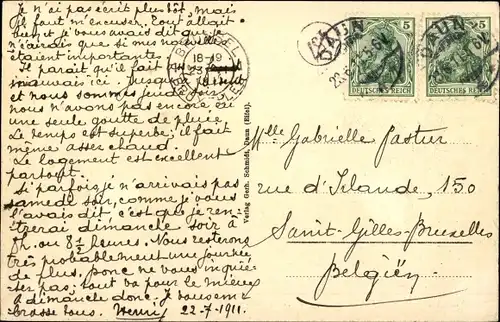 Je n'ai pas écrit plus tôt, mais
il faut m'excuser. Tout allait
bien et je vous avais dit que je
n'écrirais que si mes nouvelles
étaient importantes.
Il paraît qu'il fait
mauvais ici. Jusque
et nous sommes jeudi soir
nous n'avons pas encore eu
une seule goutte de pluie.
Le temps est superbe; il fait
même assez chaud.
Le logement est excellent
partout.
Si parfois je n'arrivais pas
samedi soir, comme je vous
l'avais dit, c'est que je ren-
trerai dimanche soir à
8h. ou 8½ heures. Nous resterons
très probablement une journée
de plus, donc ne vous inquié-
tez pas; tout va pour le mieux
à dimanche donc. Je vous em-
brasse tous. Henri 22-7-1911.
18-19
Verlag Gerh. Schmidt, Daun (Eifel).
DAUN
5
DEUTSCHES REICH
DAUN
5
DEUTSCHES REICH
Mlle Gabrielle Pastur
rue d'Irlande, 150
Saint-Gilles-Bruxelles
Belgien